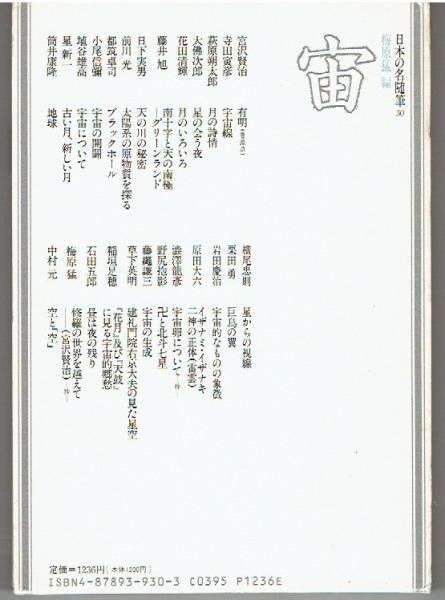 日本の名随筆 30
梅原猛 編
宙
宮沢賢治 有明(巻頭詩)
寺田寅彦 宇宙線
萩原朔太郎 月の詩情
大佛次郎 星の会う夜
花田清輝 月のいろいろ
藤井 旭 南十字と天の南極
―グリーンランド
日下実男 天の川の秘密
前川 光 太陽系の原物質を探る
都筑卓司 ブラックホール
小尾信彌 宇宙の開闢
埴谷雄高 宇宙について
星 新一 古い月、新しい月
筒井康隆 地球
横尾忠則 星からの視線
栗田 勇 巨鳥の翼
岩田慶治 宇宙的なものの象徴
原田大六 イザナミ・イザナキ
二神の正体(宙雲)
澁澤龍彥 宇宙卵について―抄―
野尻抱影 卍と北斗七星
藤繩謙三 宇宙の生成
草下英明 建礼門院右京大夫の見た星空
稲垣足穂 『花月』及び『天鼓』
に見る宇宙的郷愁
石田五郎 昼は夜の残り
梅原 猛 修羅の世界を越えて
―(宮沢賢治)―抄―
中村 元 空と「空」
定価=1236円(本体1200円)
ISBN4-87893-930-3 C0395 P1236E